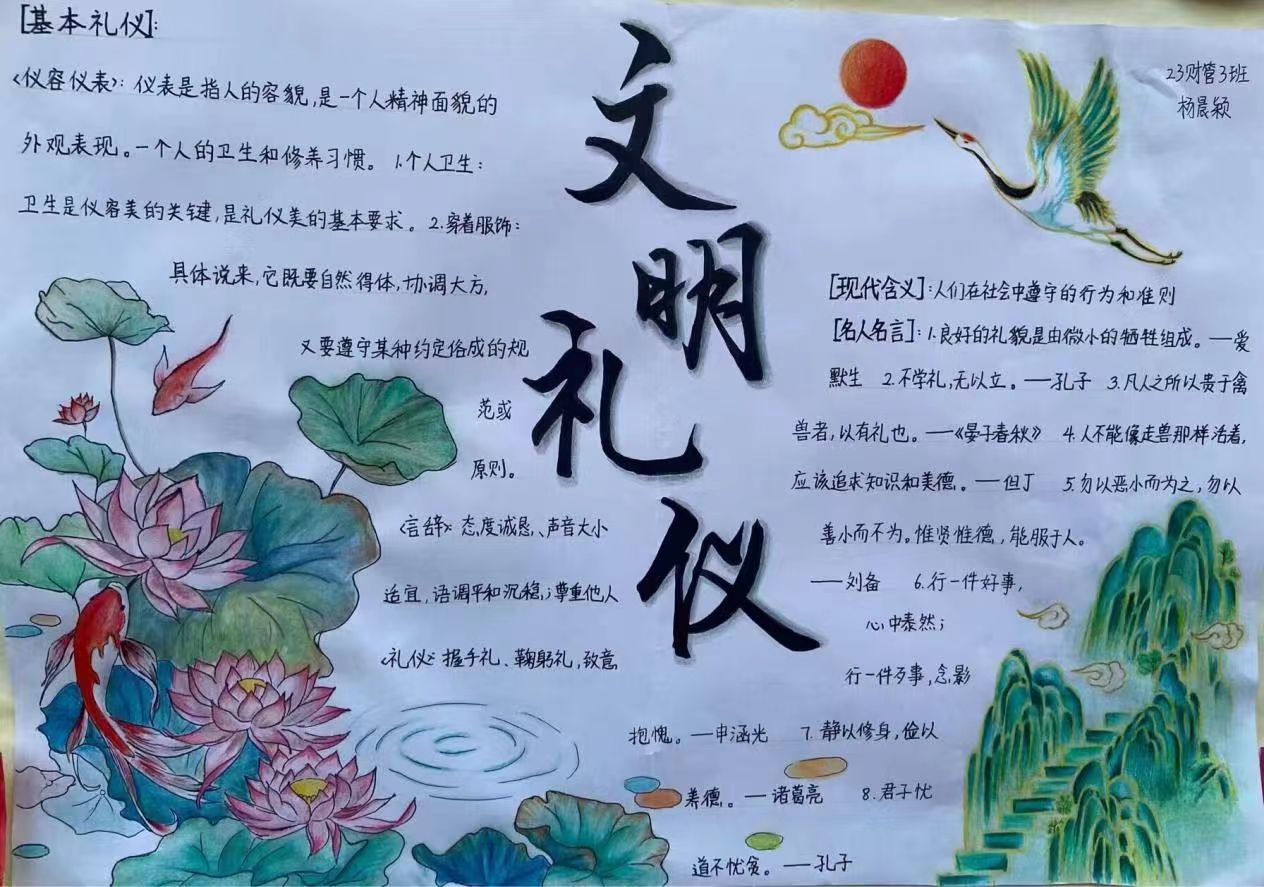 [基本礼仪]:
《仪容仪表》：仪表是指人的容貌,是一个人精神面貌的
外观表现。一个人的卫生和修养习惯。 1.个人卫生：
卫生是仪容美的关键,是礼仪美的基本要求。2.穿着服饰：
具体说来,它既要自然得体,协调大方,
又要遵守某种约定俗成的规
范或
原则。
《言辞》：态度诚恳、声音大小
适宜,语调平和沉稳,；尊重他人
《礼仪》：握手礼、鞠躬礼,致意
文明礼仪
23财管3班
杨晨颖
[现代含义]:人们在社会中遵守的行为和准则
[名人名言]:1.良好的礼貌是由微小的牺牲组成。——爱
默生 2.不学礼,无以立。——孔子 3.凡人之所以贵于禽
兽者,以有礼也。——《晏子春秋》 4.人不能像走兽那样活着,
应该追求知识和美德。——但丁 5.勿以恶小而为之,勿以
善小而不为。惟贤惟德,能服于人。
——刘备 6.行一件好事,
心中泰然；
行一件歹事,念影
抱愧。——申涵光 7.静以修身,俭以
养德。——诸葛亮 8.君子忧
道不忧贫。——孔子